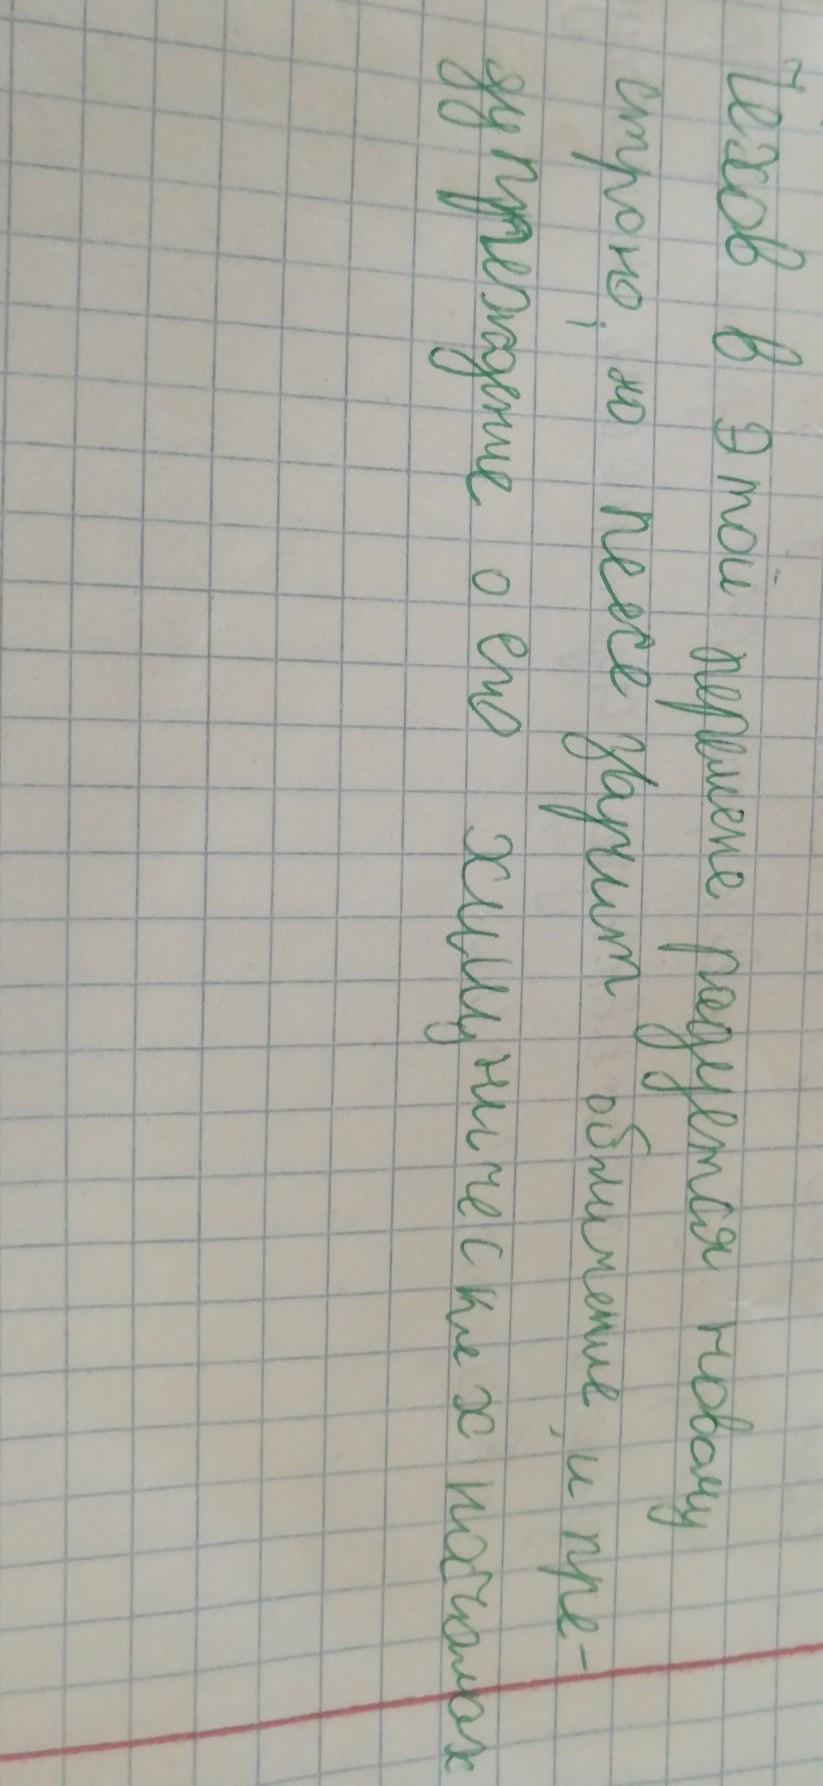 Чехов в этой перемене радуется новому
строю, но песе звучит обличение, и пре-
дупреждение о его хищнических началах